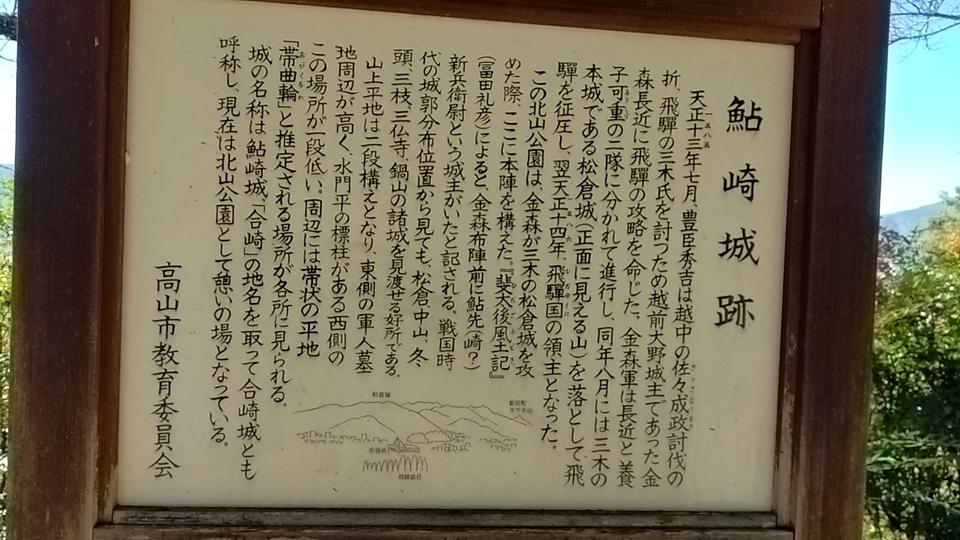 鮎崎城跡
天正十三年七月、豊臣秀吉は越中の佐々成政討伐の
折、飛騨の三木氏を討つため越前大野城主であった金
森長近に飛騨の攻略を命じた。金森軍は長近と養
子可重の二隊に分かれて進行し、同年八月には三木の
本城である松倉城(正面に見える山)を落として飛
騨を征圧し、翌天正十四年、飛騨国の領主となった。
この北山公園は、金森が三木の松倉城を攻
めた際、ここに本陣を構えた。『斐太後風土記』
(冨田礼彦)によると、金森布陣前に鮎先(崎?)
新兵衛尉という城主がいたと記される。戦国時
代の城郭分布位置から見ても、松倉、中山、冬
頭、三枝、三仏寺、鍋山の諸城を見渡せる好所である。
山上平地は二段構えとなり、東側の軍人墓
地周辺が高く、水門平の標柱がある西側の
この場所が一段低い、周辺には帯状の平地
「帯曲輪」と推定される場所が各所に見られる。
城の名称は鮎崎城、「合崎」の地名を取って合崎城とも
呼称し、現在は北山公園として憩いの場となっている。
高山市教育委員会
松倉城
市役所